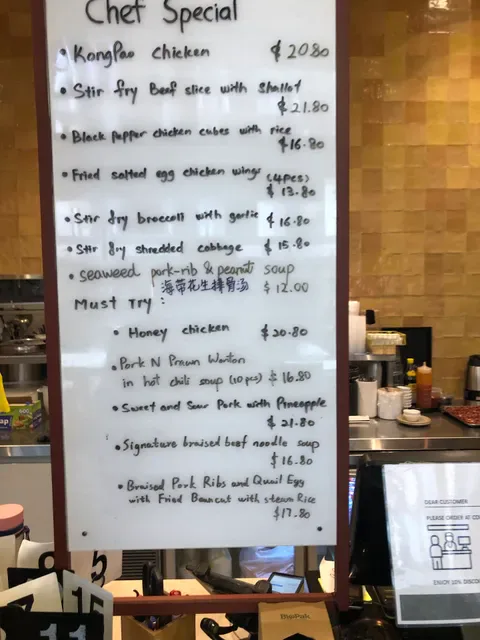 Chef Special
• KongPao chicken $20.80
• Stir fry Beef slice with shallot
$21.80
• Black pepper chicken cubes with rice
$16.80
• Fried salted egg chicken wings (4pcs)
$13.80
• Stir fry broccoli with garlic $16.80
• Stir fry shredded cabbage $15.80
• seaweed pork-rib & peanut soup
海带花生排骨汤 $12.00
Must Try:
• Honey chicken $20.80
• Pork N Prawn Wonton
in hot chili soup (10pcs) $16.80
• Sweet and Sour Pork with Pineapple
$21.80
• Signature braised beef noodle soup
$16.80
• Braised Pork Ribs and Quail Egg
with Fried Beancut with steam Rice
$17.80
DEAR CUSTOMER
PLEASE ORDER AT CO
ENJOY 10% DISCO
BioPak
8
5
15
11